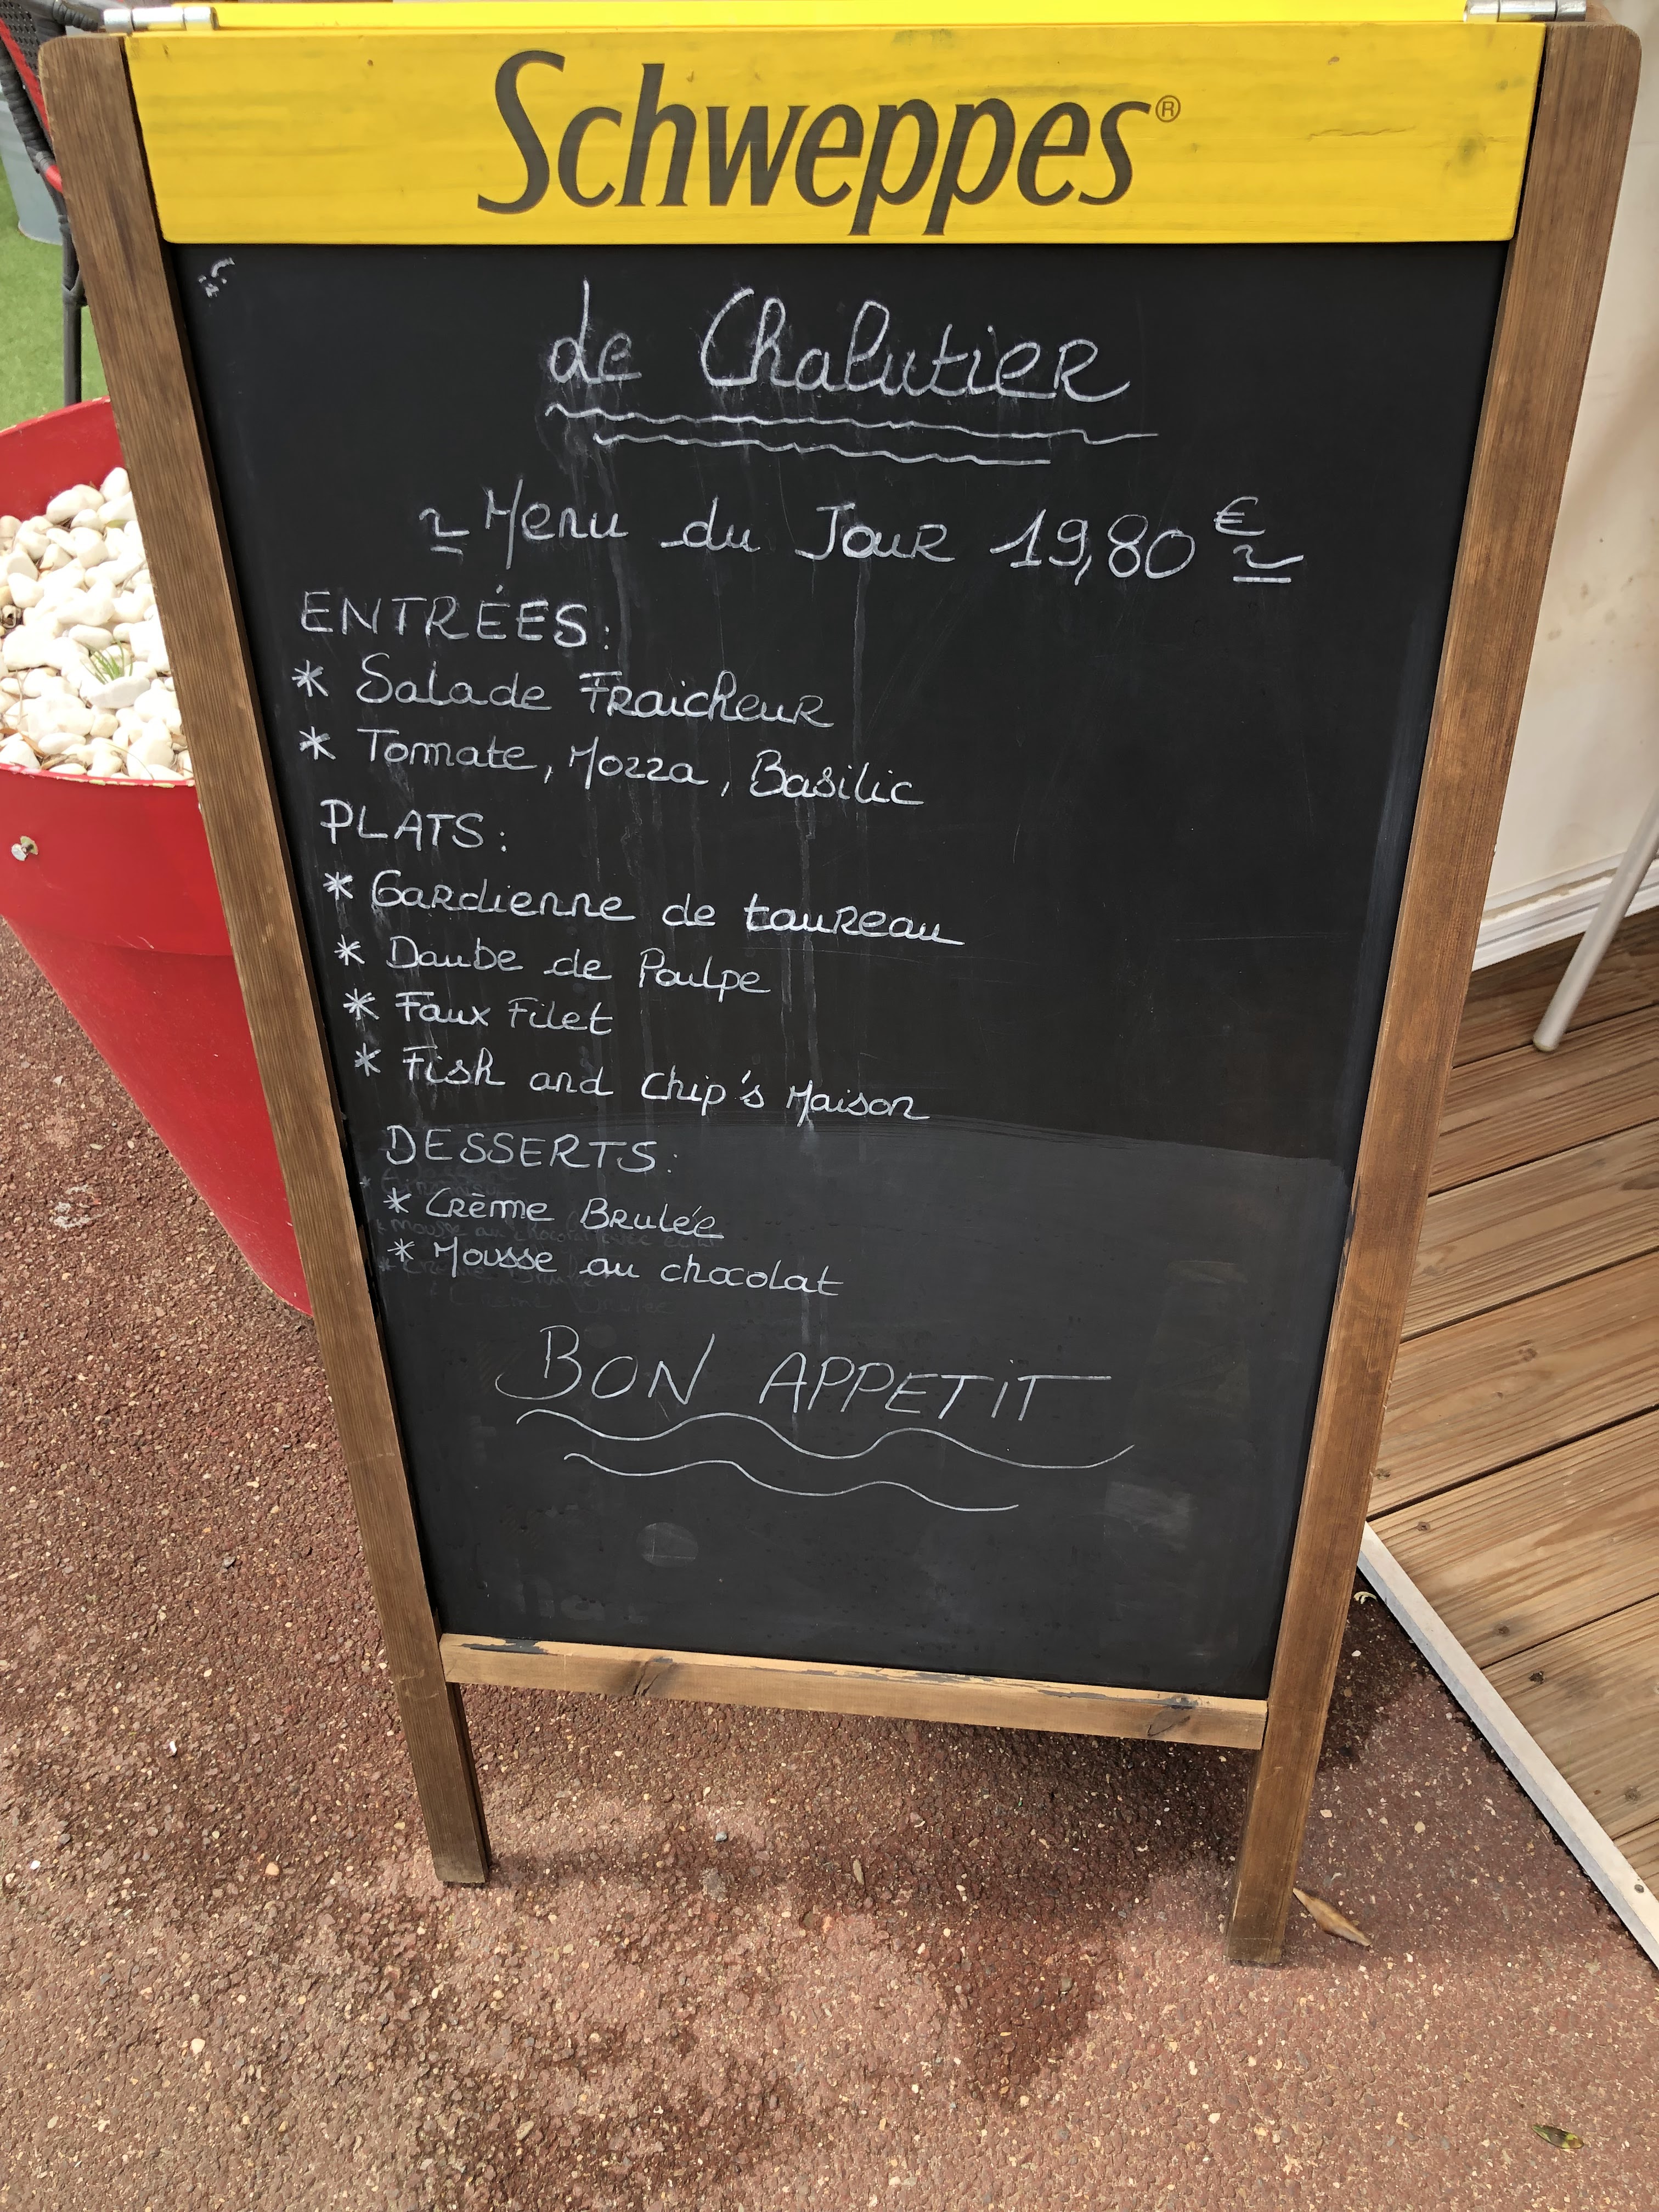 Schweppes®
de Chalutier
~ Menu du Jour 19,80 € ~
ENTRÉES:
* Salade Fraicheur
* Tomate, Mozza, Basilic
PLATS:
* Gardienne de taureau
* Daube de Poulpe
* Faux Filet
* Fish and Chip's Maison
DESSERTS:
* Crème Brulée
* Mousse au chocolat
BON APPETIT